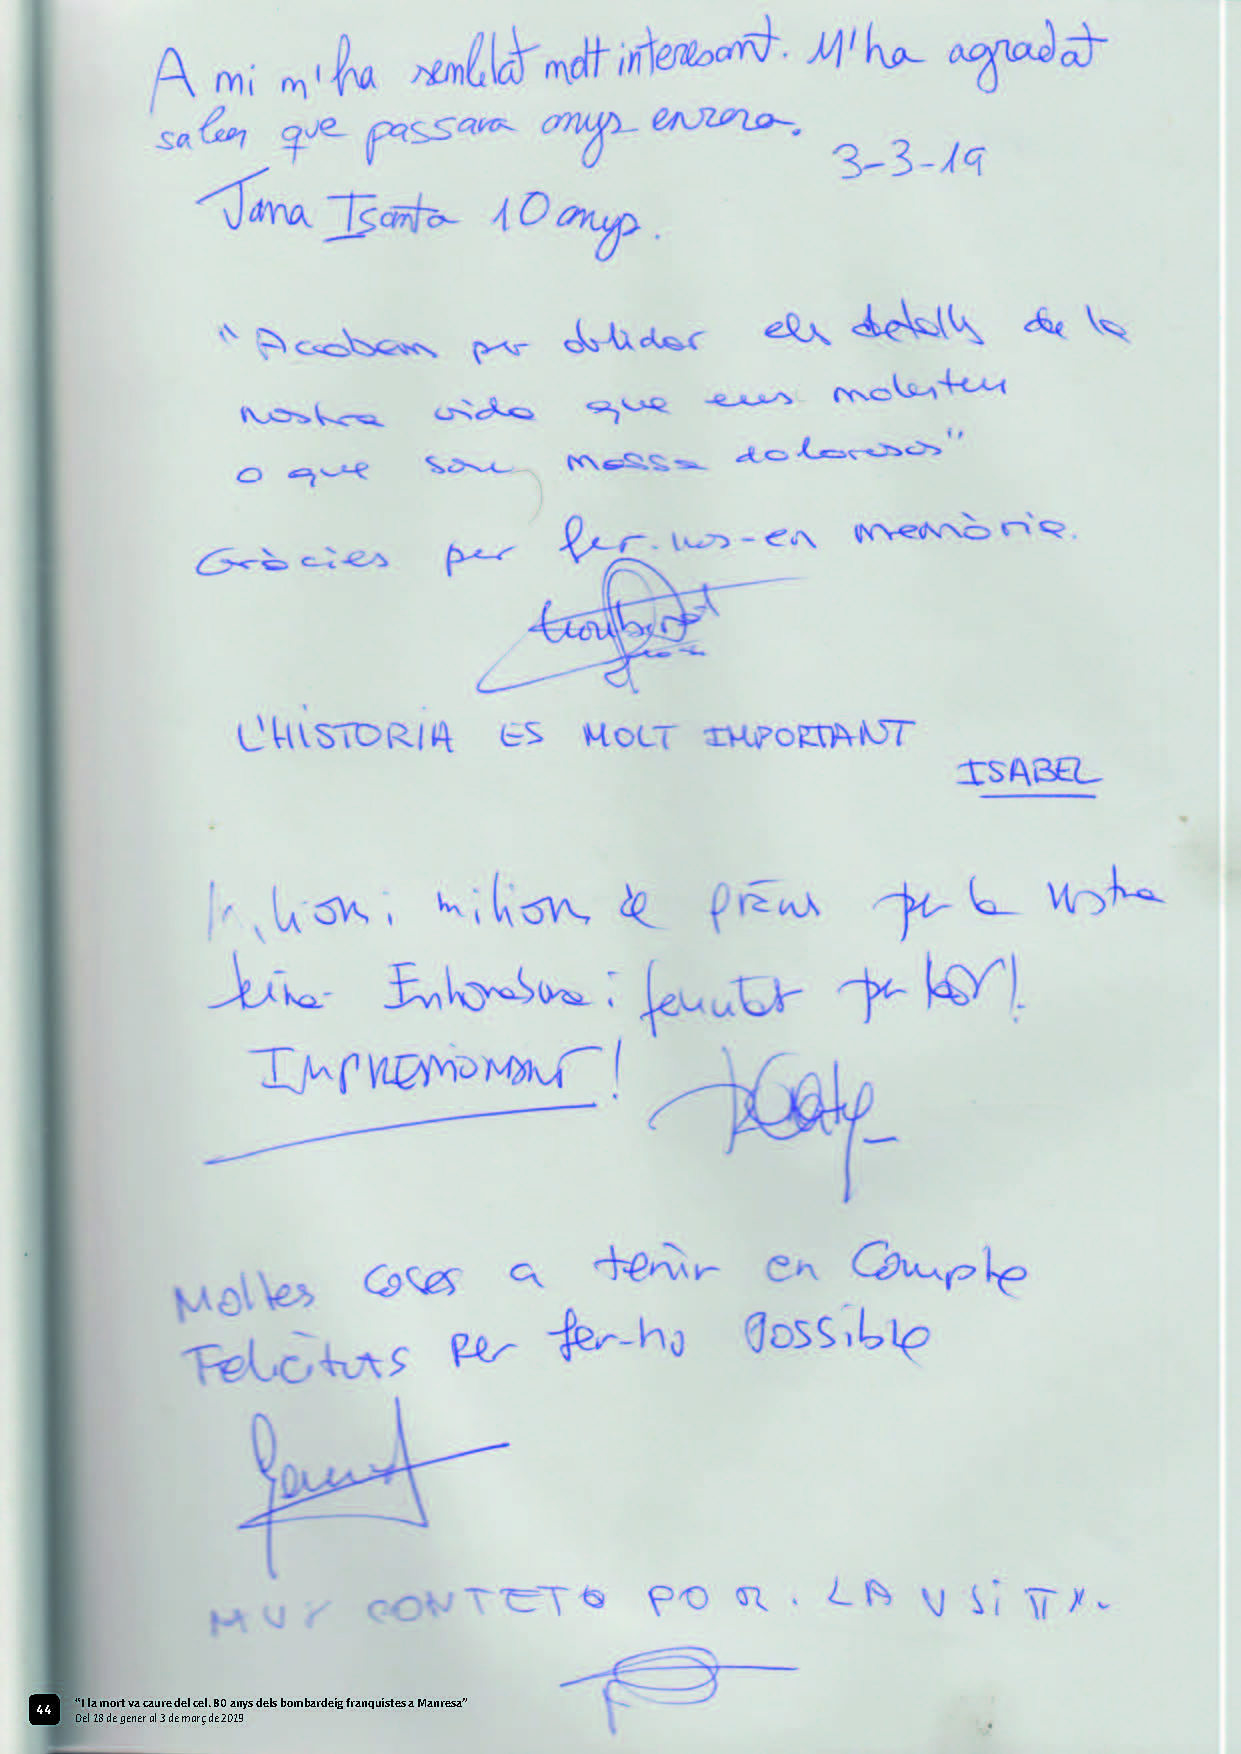 A mi m'ha semblat molt interesant. M'ha agradat
saber que passava anys enrera.
3-3-19
Jana Isanta 10 anys.
"Acabem per oblidar els detalls de la
nostra vida que ens molesten
o que son massa dolorosos"
Gràcies per fer-nos-en memòria.
L'HISTORIA ES MOLT IMPORTANT
ISABEL
Milions i milions de gràcies per la vostra
feina. Enhorabona i felicitats per tot!
IMPRESSIONANT!
Moltes coses a tenir en Compte
Felicitats per fer-ho possible
MUY CONTETO POR. LA VSITA.
44
"I la mort va caure del cel. 80 anys dels bombardeig franquistes a Manresa"
Del 28 de gener al 3 de març de 2019